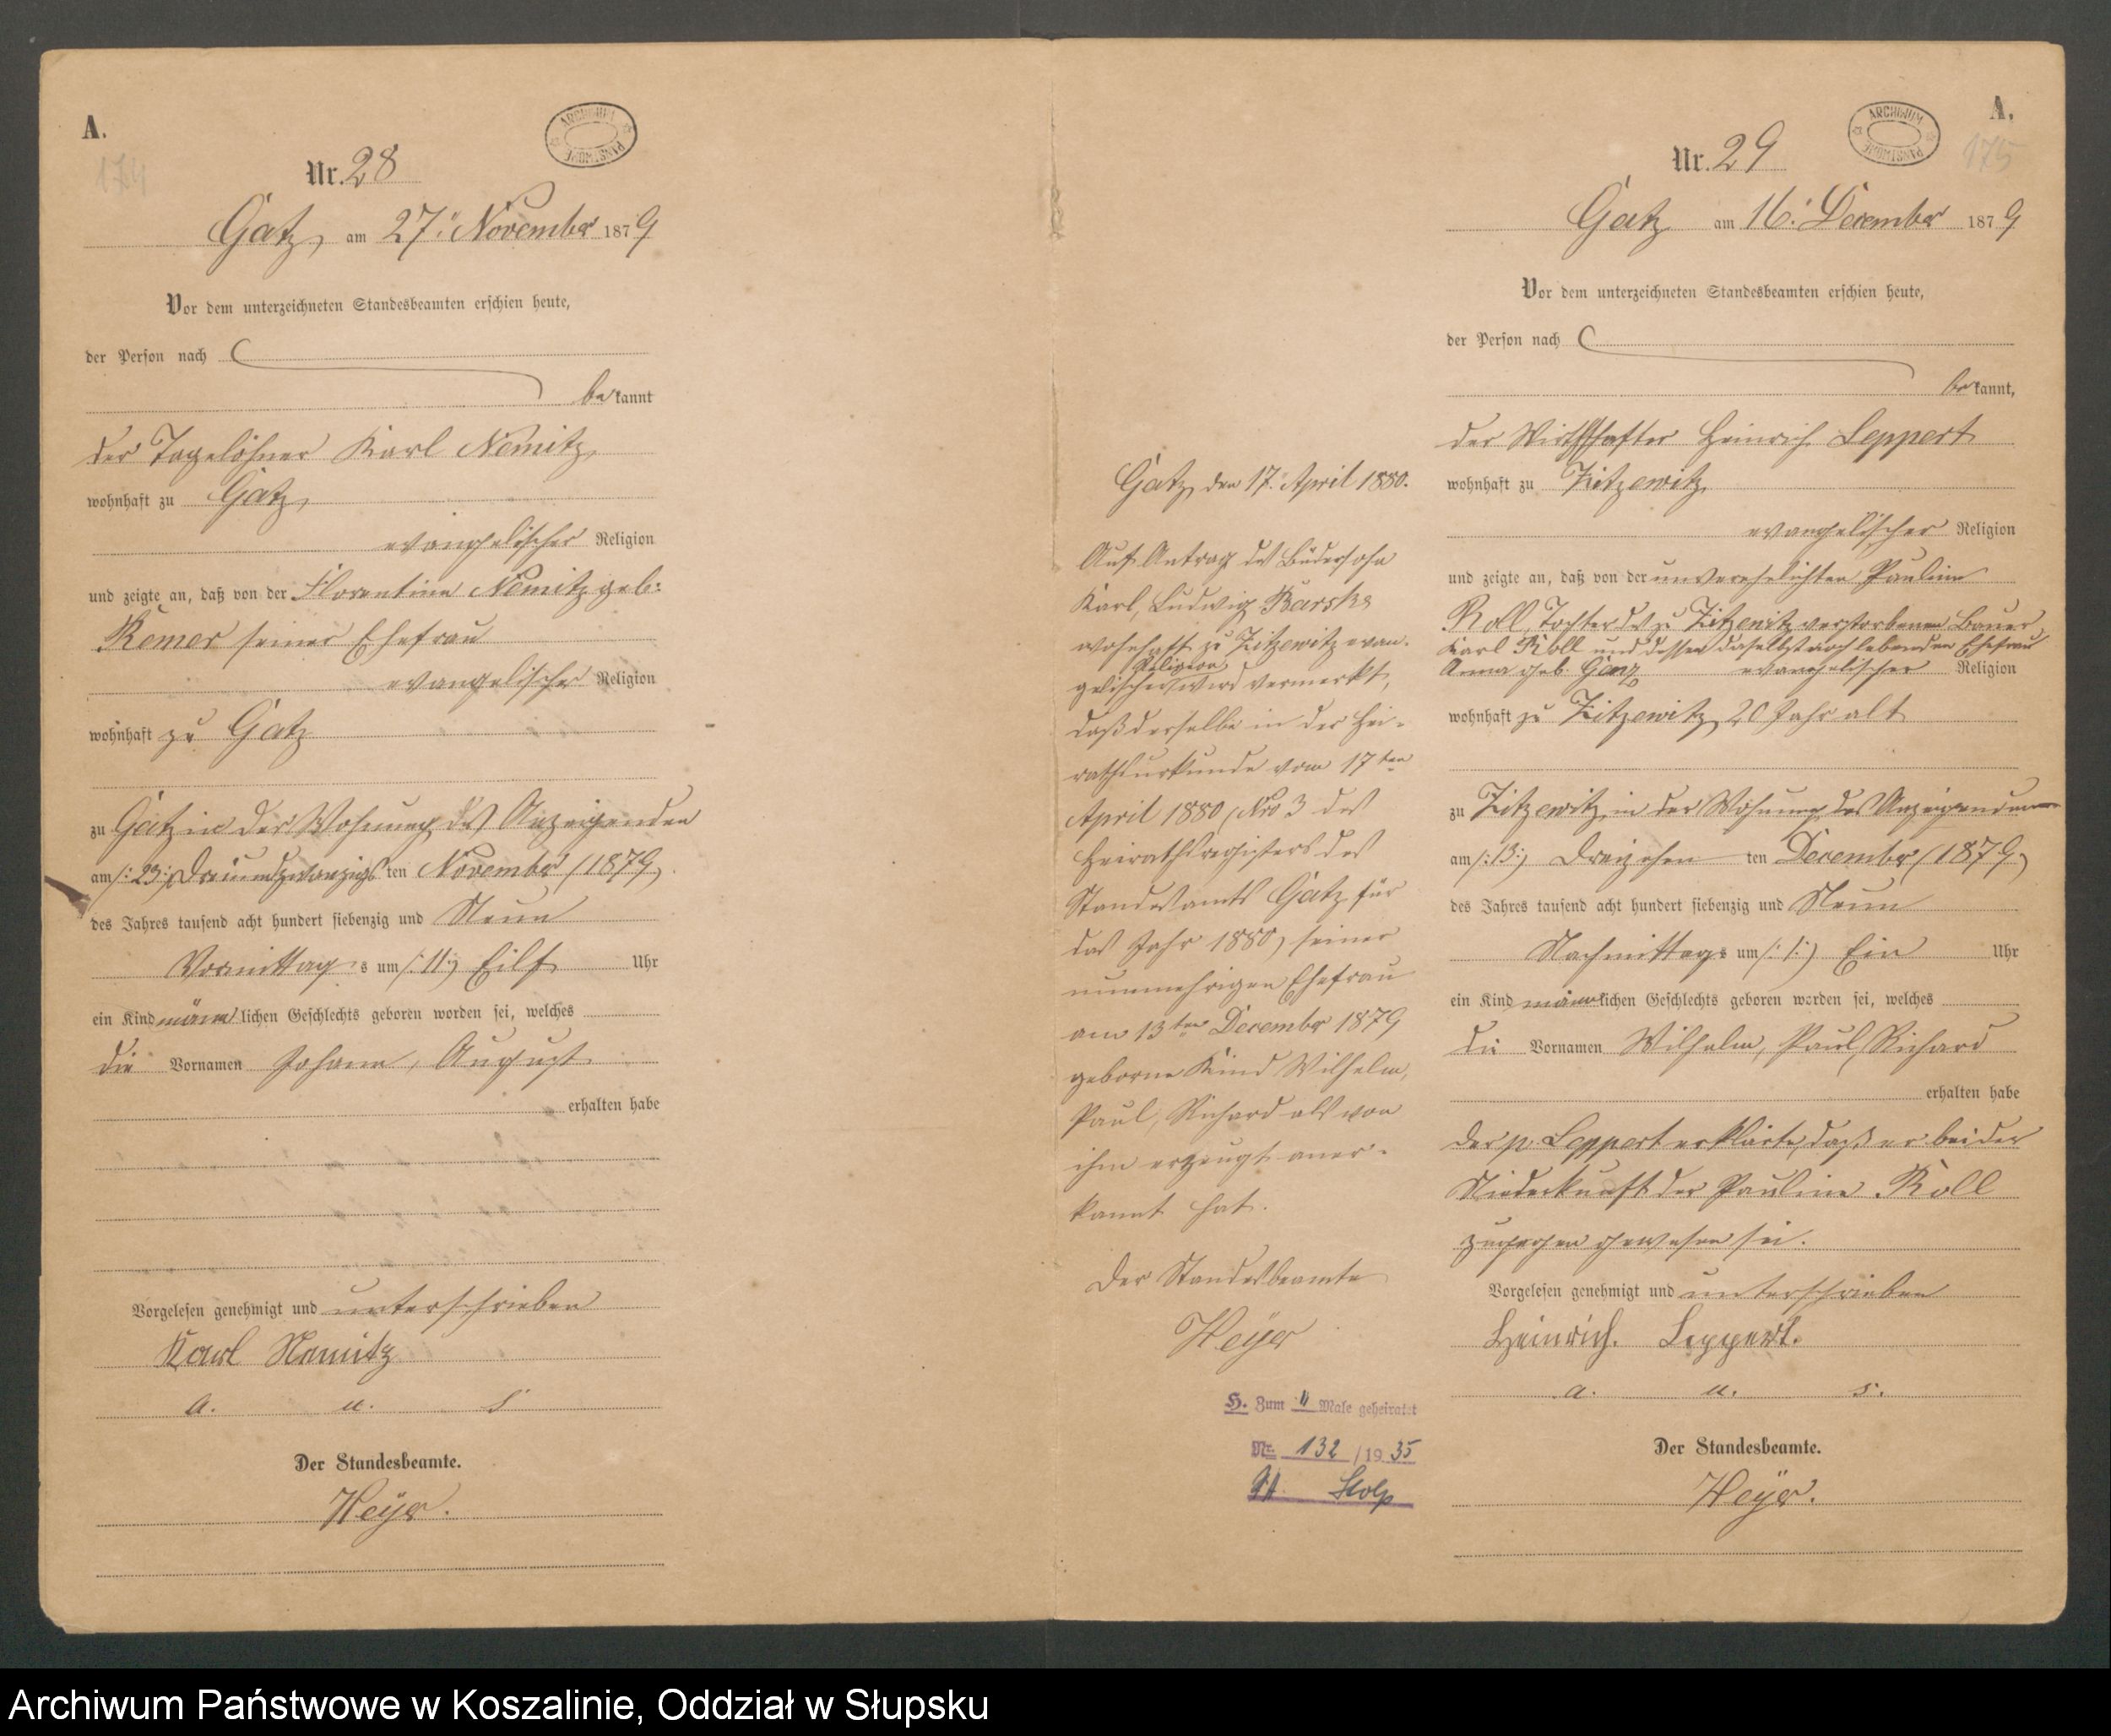 A.
174
ARCHIWUM PAŃSTWOWE
Nr. 28
Gatz, am 27. November 1879
Vor dem unterzeichneten Standesbeamten erschien heute,
der Person nach
bekannt
der Tagelöhner Karl Nemitz,
wohnhaft zu Gatz,
evangelischer Religion
und zeigte an, daß von der Florentine Nemitz geb:
Remer seiner Ehefrau
evangelischer Religion
wohnhaft zu Gatz
zu Gatz in der Wohnung des Anzeigenden
am /: 23:/ Dreiundzwanzigs ten November (1879)
des Jahres tausend acht hundert siebenzig und Neun
Vormittag s um /: 11:/ Eilf Uhr
ein Kind männlichen Geschlechts geboren worden sei, welches
die Vornamen Johann, August
erhalten habe
Vorgelesen genehmigt und unterschrieben
Karl Nemitz
a. u. s
Der Standesbeamte.
Heÿer.
Gatz, den 17. April 1880.
Auf Antrag des Büdersohn
Karl, Ludwig Barske
wohnhaft zu Zitzewitz evan-
gelischer Religion wird vermerkt,
daß derselbe in der Hei-
rathsurkunde vom 17ten
April 1880 (Nro 3 des
Heirathsregisters des
Standesamts Gatz für
das Jahr 1880) seiner
nunmehrigen Ehefrau
am 13ten December 1879
geborne Kind Wilhelm,
Paul, Richard als von
ihm erzeugt aner-
kannt hat.
Der Standesbeamte
Heÿer
H. Zum II Male geheiratet
Nr. 132 /1935
StA Stolp
A.
175
ARCHIWUM PAŃSTWOWE
Nr. 29
Gatz am 16. December 1879
Vor dem unterzeichneten Standesbeamten erschien heute,
der Person nach
bekannt,
der Wirthschafter Heinrich Leppert
wohnhaft zu Zitzewitz
evangelischer Religion
und zeigte an, daß von der unverehelichten Pauline
Roll, Tochter des zu Zitzewitz verstorbenen Bauer
Karl Roll und dessen daselbst noch lebenden Ehefrau
Anna geb. Genz evangelischer Religion
wohnhaft zu Zitzewitz, 20 Jahr alt
zu Zitzewitz in der Wohnung des Anzeigenden
am /: 13:/ Dreizehn ten December (1879)
des Jahres tausend acht hundert siebenzig und Neun
Nachmittags um /: 1:/ Ein Uhr
ein Kind männlichen Geschlechts geboren worden sei, welches
die Vornamen Wilhelm, Paul, Richard
erhalten habe
der p. Leppert erklärte, daß er bei der
Niederkunft der Pauline Roll
zugegen gewesen sei.
Vorgelesen genehmigt und unterschrieben
Heinrich. Leppert.
a. u. s.
Der Standesbeamte.
Heÿer.
Archiwum Państwowe w Koszalinie, Oddział w Słupsku